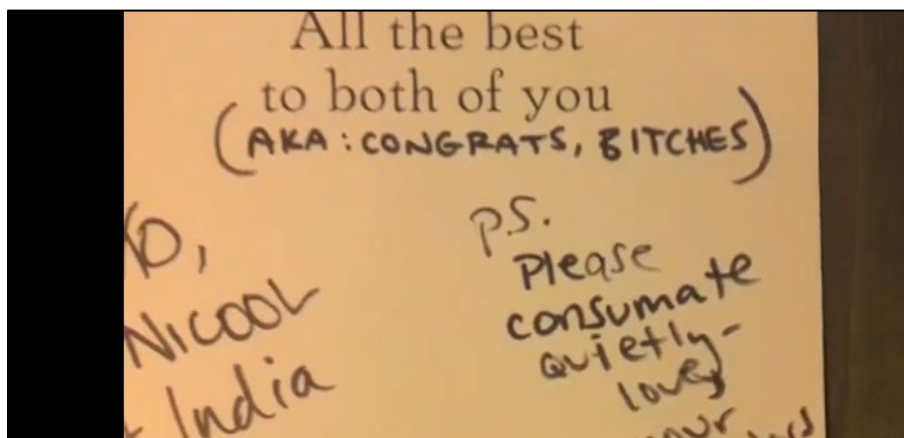 All the best
to both of you
(AKA: CONGRATS, BITCHES)
NICOOL
India
P.S.
Please
consumate
quietly-
love,